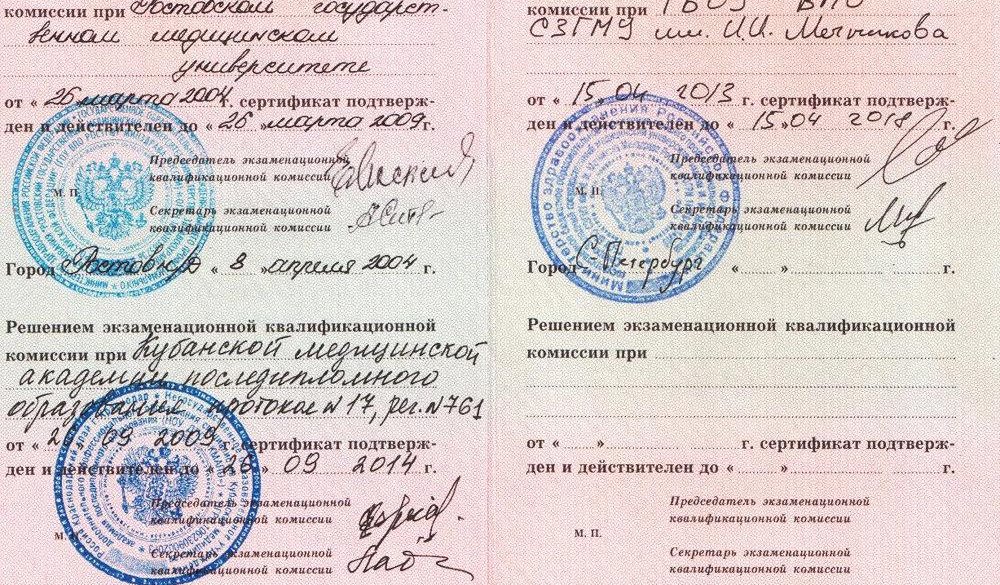 комиссии при Ростовском государст-
венном медицинском
университете
от « 26 марта 2004 г. сертификат подтверж-
ден и действителен до « 26 » марта 2009 г.
Председатель экзаменационной
квалификационной комиссии
М. П.
Секретарь экзаменационной
квалификационной комиссии
Город Ростов н/Д « 8 » апреля 2004 г.
Решением экзаменационной квалификационной
комиссии при Кубанской медицинской
академии последипломного
образования протокол N 17, рег. N 761
от « 09 2009 г. сертификат подтверж-
ден и действителен до « 26 » 09 2014 г.
Председатель экзаменационной
квалификационной комиссии
М.
Секретарь экзаменационной
квалификационной комиссии
комиссии при ГБОУ ВПО
СЗГМУ им. И.И. Мечникова
от « 15 » 04 2013 г. сертификат подтверж-
ден и действителен до « 15 » 04 2018 г.
Председатель экзаменационной
квалификационной комиссии
М. П.
Секретарь экзаменационной
квалификационной комиссии
Город С-Петербург « » г.
Решением экзаменационной квалификационной
комиссии при
от « » г. сертификат подтверж-
ден и действителен до « » г.
Председатель экзаменационной
квалификационной комиссии
М. П.
Секретарь экзаменационной
квалификационной комиссии